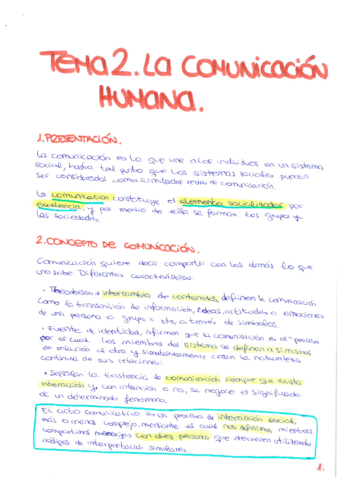 TEMA 2. LA COMUNICACIÓN
HUMANA.
1. PRESENTACIÓN.
La comunicación es lo que une a los individuos en un sistema
social, hasta tal punto que los sistemas sociales pueden
ser considerados como redes de comunicación.
La comunicación constituye el elemento socializador por
excelencia y por medio de ella se forman los grupos y
las sociedades.
2. CONCEPTO DE COMUNICACIÓN.
Comunicación quiere decir compartir con los demás lo que
uno sabe. Diferentes características:
· Theodorson: intercambio de contenidos, definen la comunicación
como la transmisión de información, ideas, actitudes o emociones
de una persona o grupo a otro, a través de símbolos.
· Fuente de identidad, afirman que la comunicación es el proceso
por el cual los miembros del sistema se definen a sí mismos
en relación al otro y simultáneamente crean la naturaleza
continua de sus relaciones.
· Señalan la existencia de comunicación siempre que exista
interacción y, con intención o no, se negocie el significado
de un determinado fenómeno.
El acto comunicativo es un proceso de interacción social,
más o menos complejo, mediante el cual nos definimos, mientras
compartimos mensajes con otras personas que intervienen utilizando
códigos de interpretación similares.
1.